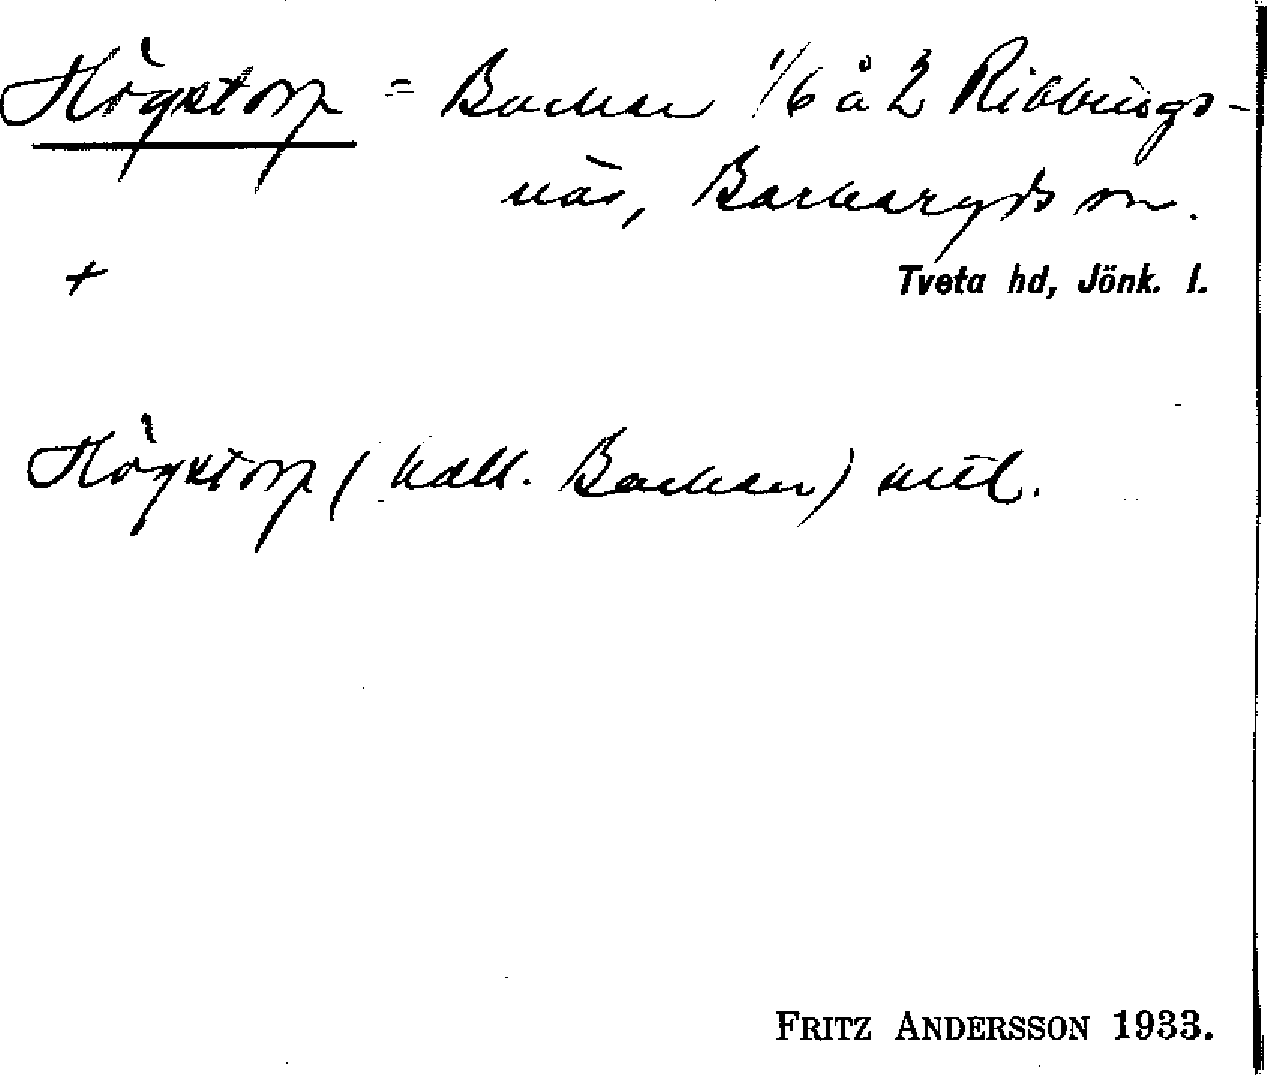 Högstorp = Backen 1/6 å 2 Ribbings-
näs, Barkaryds sn.
+
Tveta hd, Jönk. l.
Högstorp (kall. Backen) utl.
FRITZ ANDERSSON 1933.